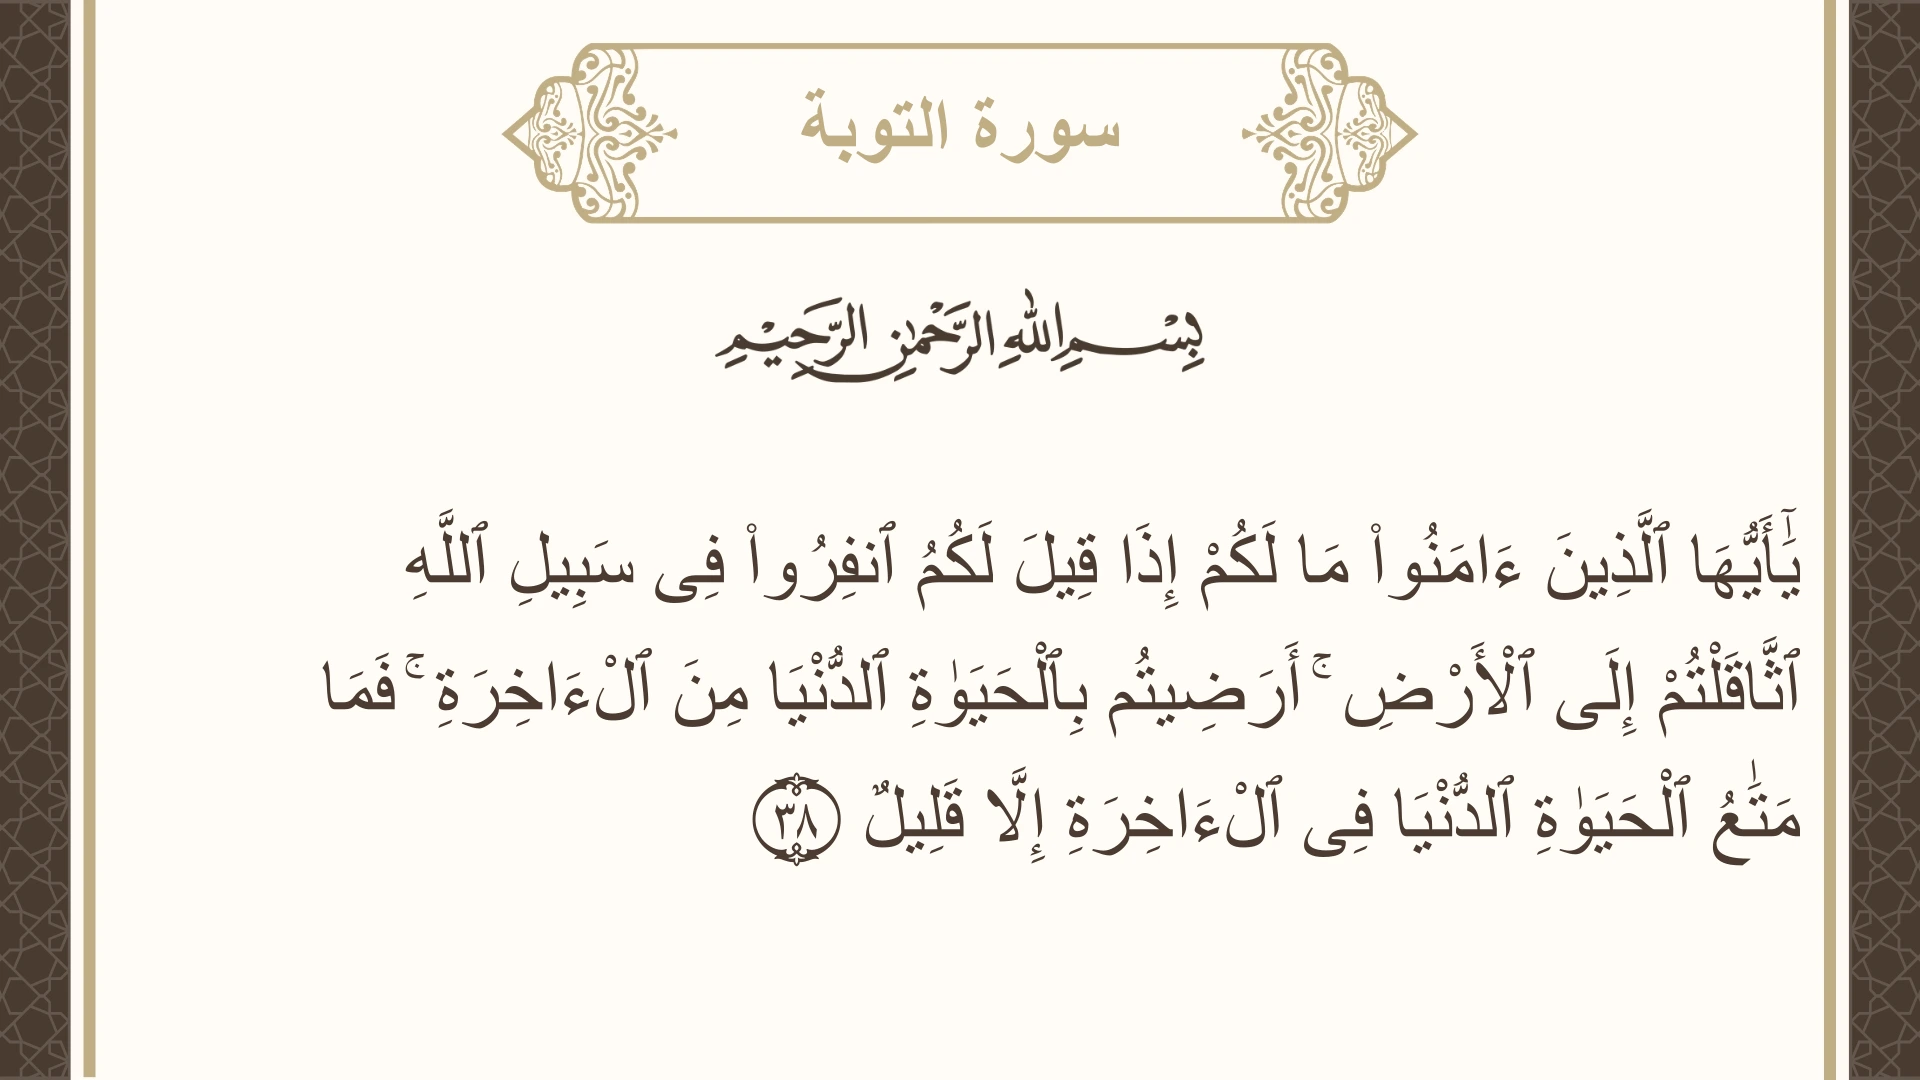 سورة التوبة
بِسْمِ اللهِ الرَّحْمٰنِ الرَّحِيْمِ
يَٰٓأَيُّهَا ٱلَّذِينَ ءَامَنُوا۟ مَا لَكُمْ إِذَا قِيلَ لَكُمُ ٱنفِرُوا۟ فِى سَبِيلِ ٱللَّهِ
ٱثَّاقَلْتُمْ إِلَى ٱلْأَرْضِ ۚ أَرَضِيتُم بِٱلْحَيَوٰةِ ٱلدُّنْيَا مِنَ ٱلْءَاخِرَةِ ۚ فَمَا
مَتَٰعُ ٱلْحَيَوٰةِ ٱلدُّنْيَا فِى ٱلْءَاخِرَةِ إِلَّا قَلِيلٌ ٣٨